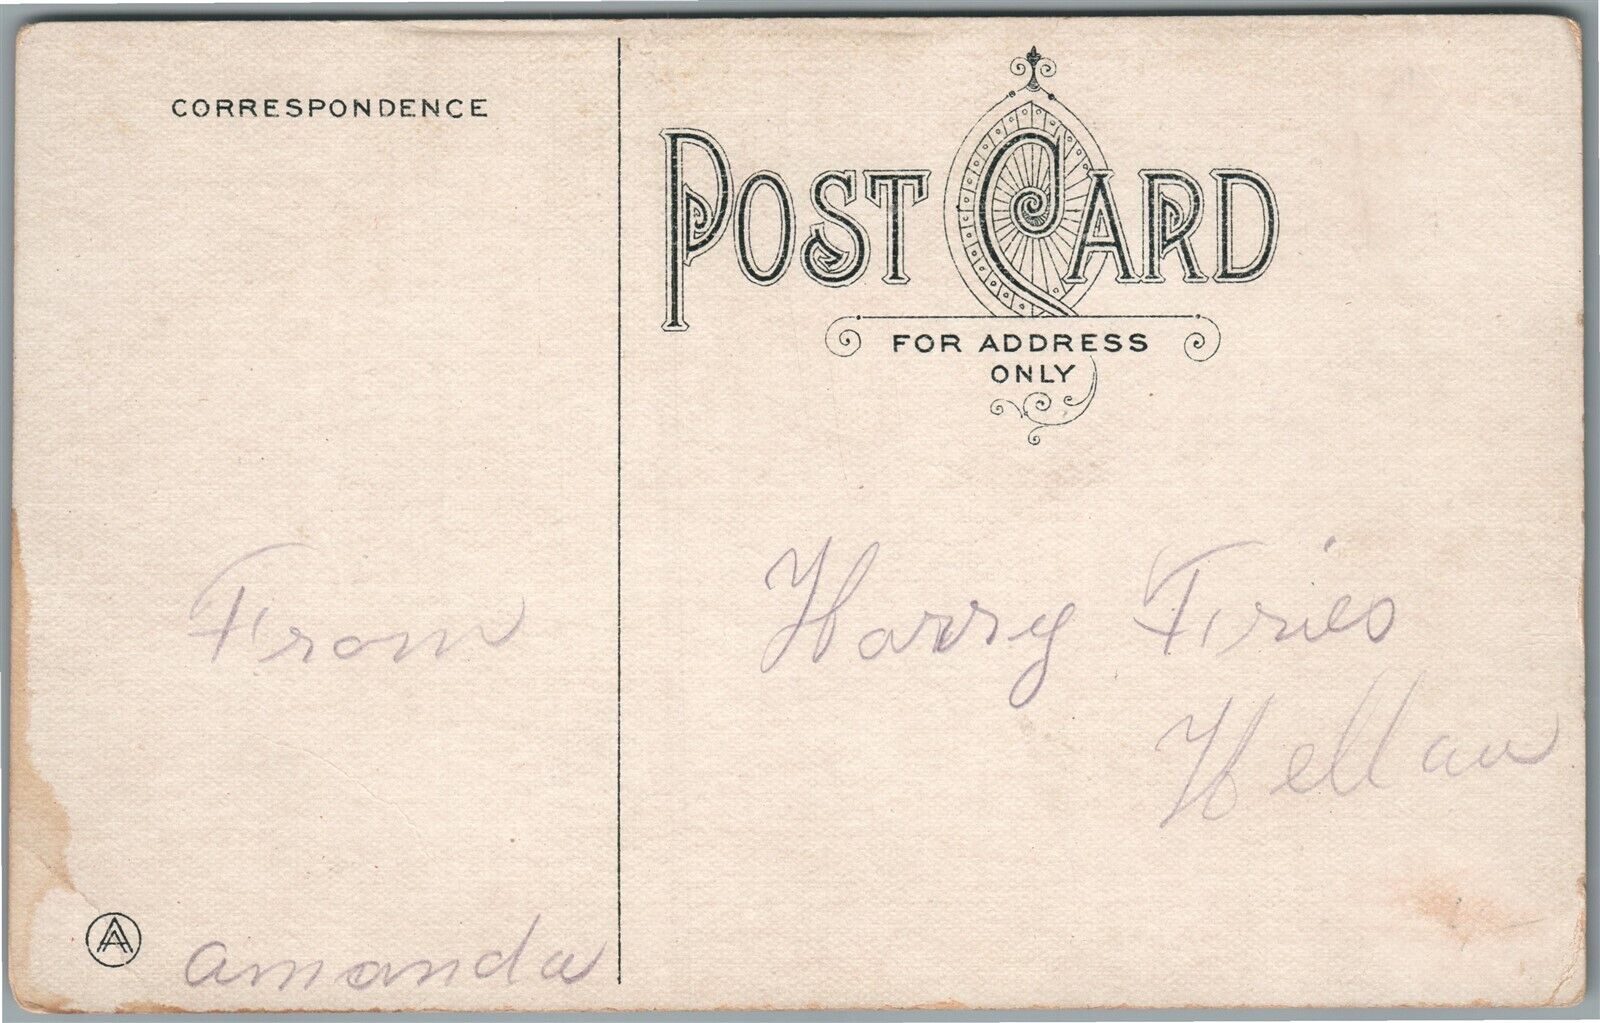 CORRESPONDENCE
POST CARD
FOR ADDRESS
ONLY
From
Harry Fries
Hellam
AA
amanda